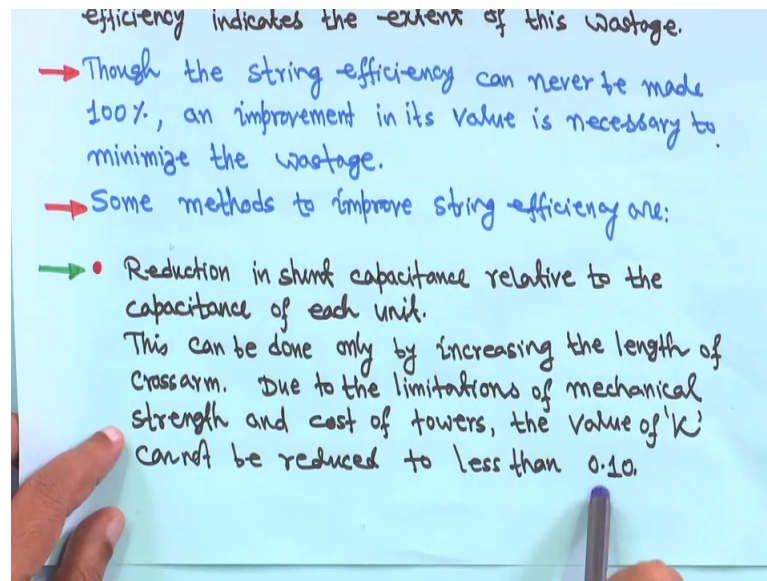 efficiency indicates the extent of this wastage.
Though the string efficiency can never be made
100%, an improvement in its value is necessary to
minimize the wastage.
Some methods to improve string efficiency are:
Reduction in shunt capacitance relative to the
capacitance of each unit.
This can be done only by increasing the length of
crossarm. Due to the limitations of mechanical
strength and cost of towers, the value of 'K'
cannot be reduced to less than 0.10.